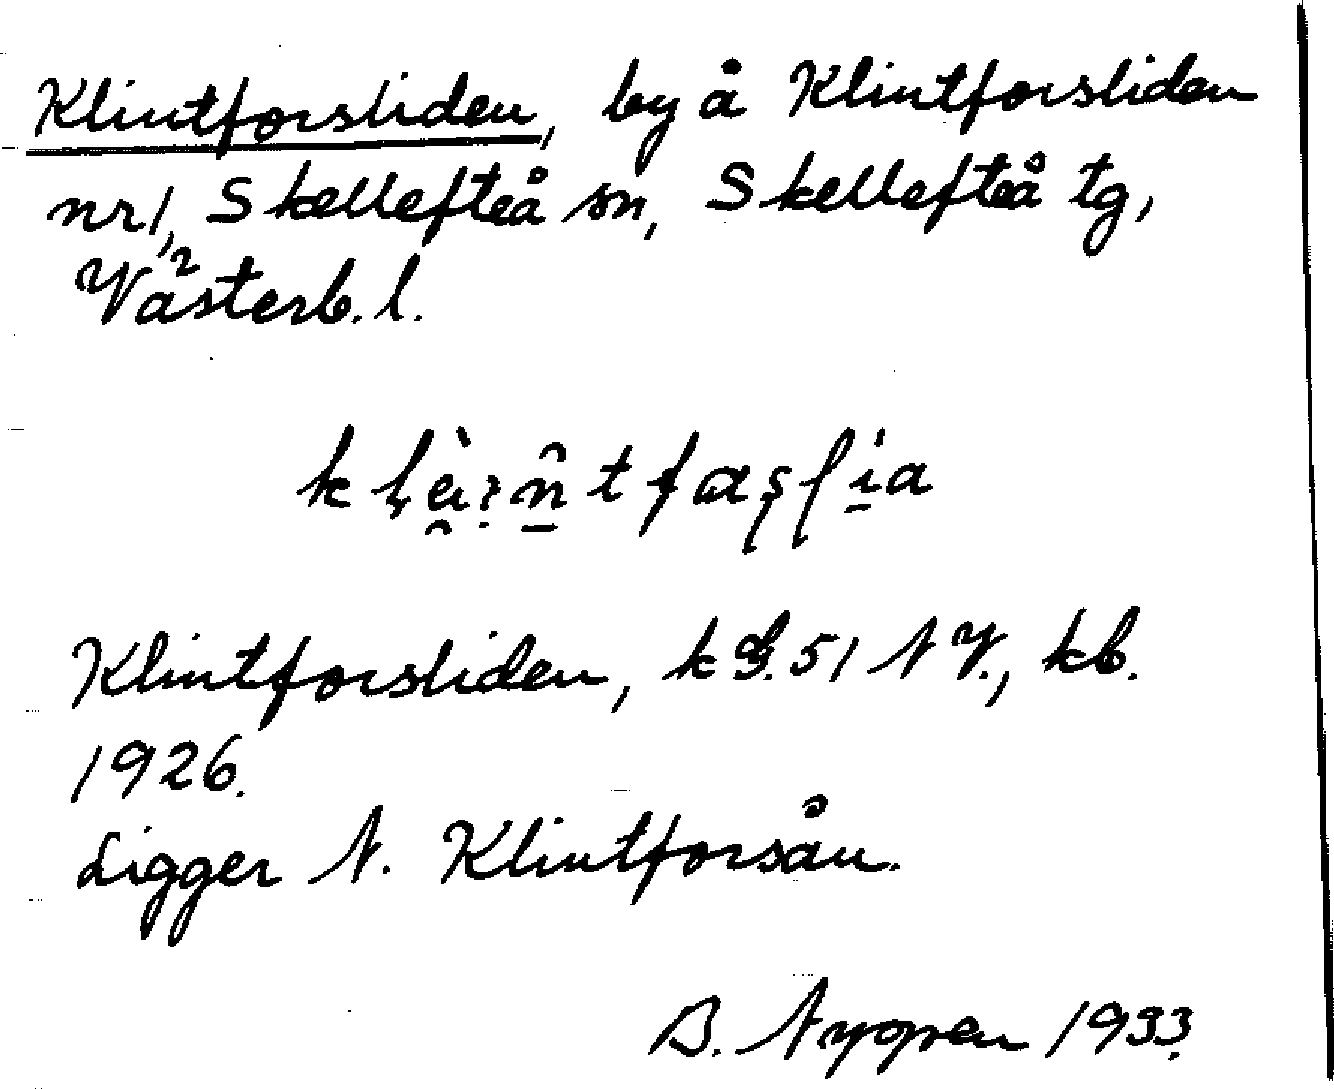 Klintforsliden, by å Klintforsliden
nr 1, Skellefteå sn, Skellefteå tg,
Västerb. l.
Klintforsliden, k G. 51 NV., kb.
1926.
Ligger N. Klintforsån.
B. Nygren 1933.